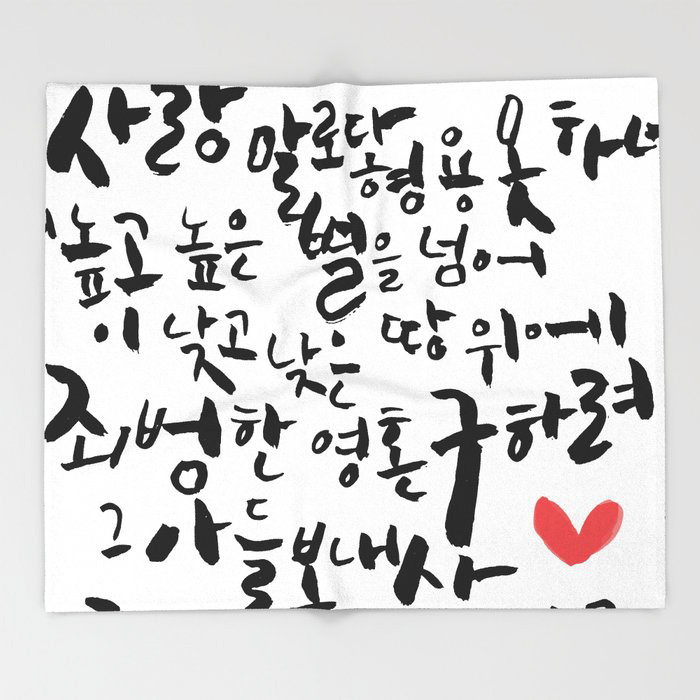 사랑 말로다 형용 못하
높고 높은 별을 넘어
이 낮고 낮은 땅 위에
죄 범한 영혼 구하려
그 아들 보내사